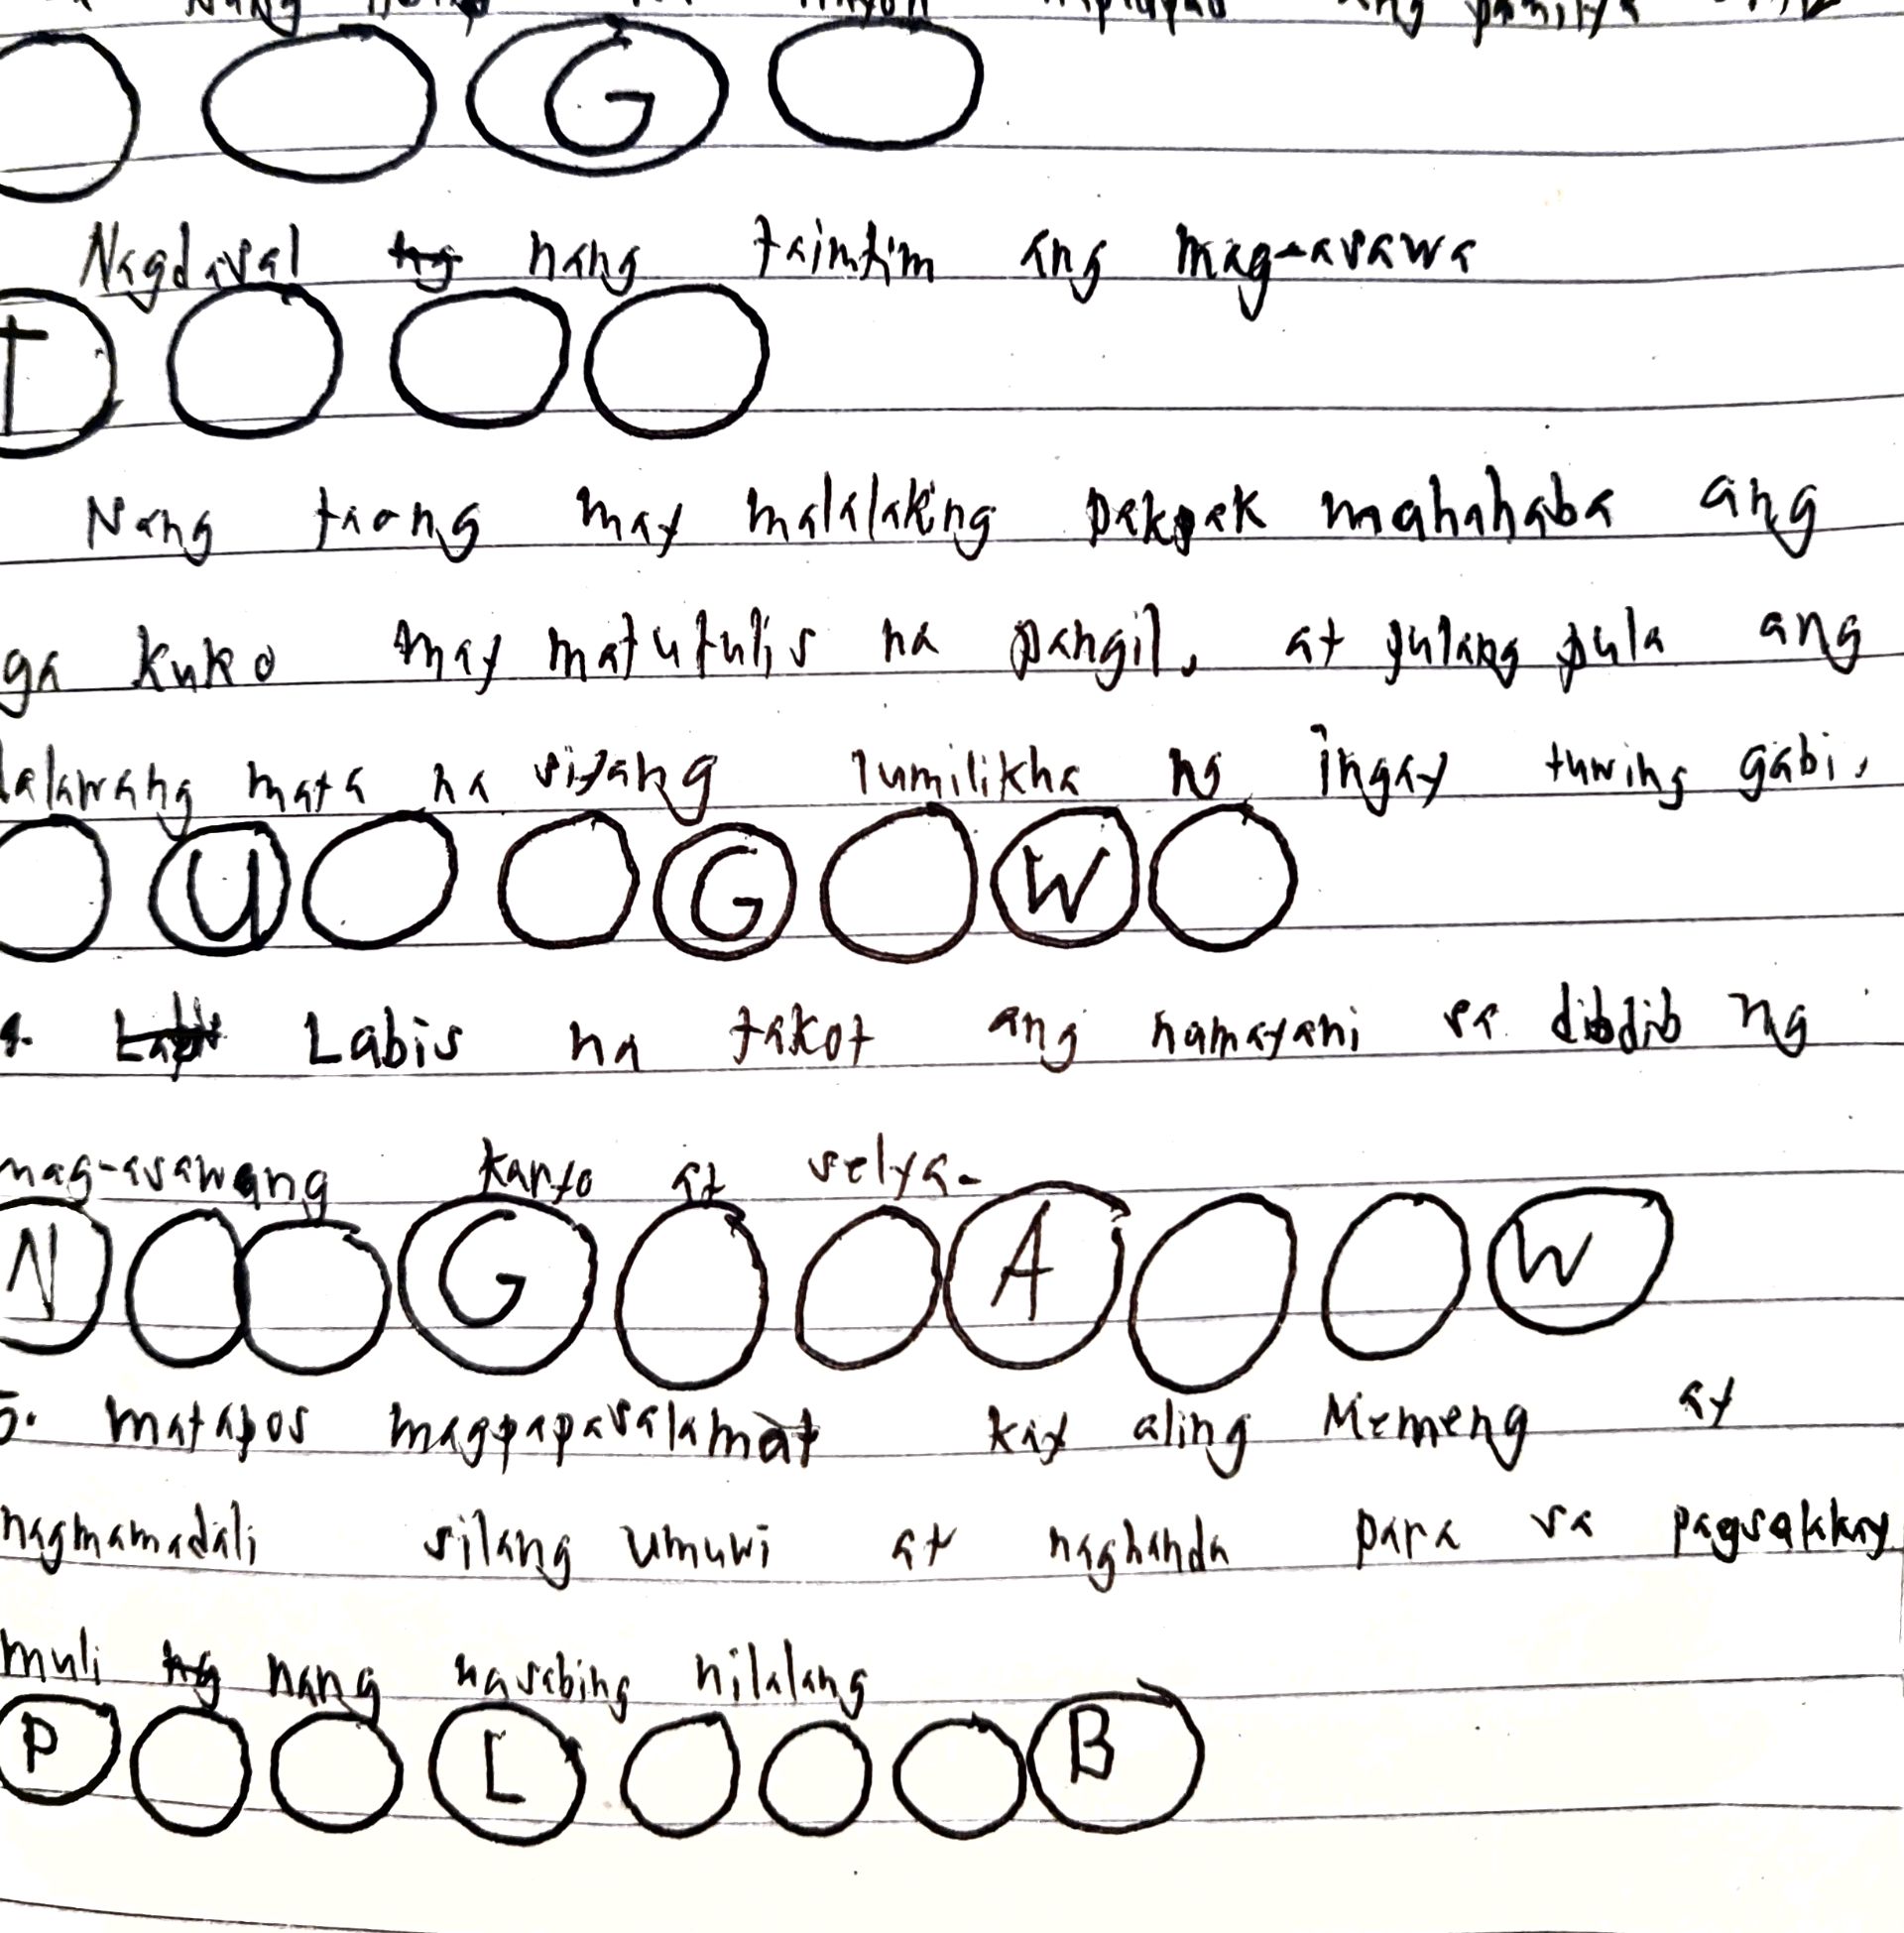 ang pamilya
G
Nagdasal nang taimtim ang mag-asawa
T
Nang taong may malalaking pakpak mahahaba ang
ga kuko may matutulis na pangil, at pulang pula ang
lalawang mata na siyang lumilikha ng ingay tuwing gabi,
U G W
4. Labis na takot ang namayani sa dibdib ng
mag-asawang kanyo at selya.
N G A W
5. matapos magpapasalamat kay aling Memeng ay
nagmamadali silang umuwi at naghanda para sa pagsalakay
muli nang nasabing nilalang
P L B